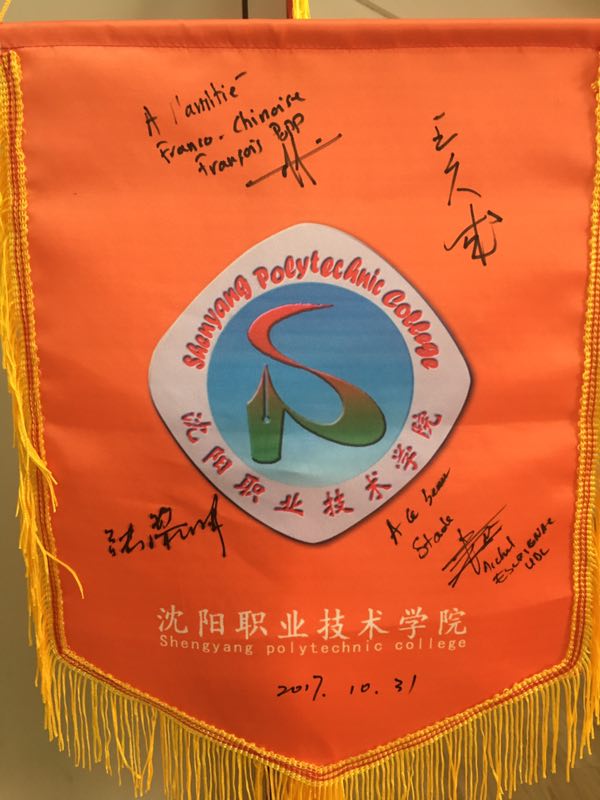 A l'amitié
Franco-Chinoise
François
王久成
Shenyang Polytechnic College
沈阳职业技术学院
A ce beau
Stade
Michel
UDL
沈阳职业技术学院
Shengyang polytechnic college
2017.10.31